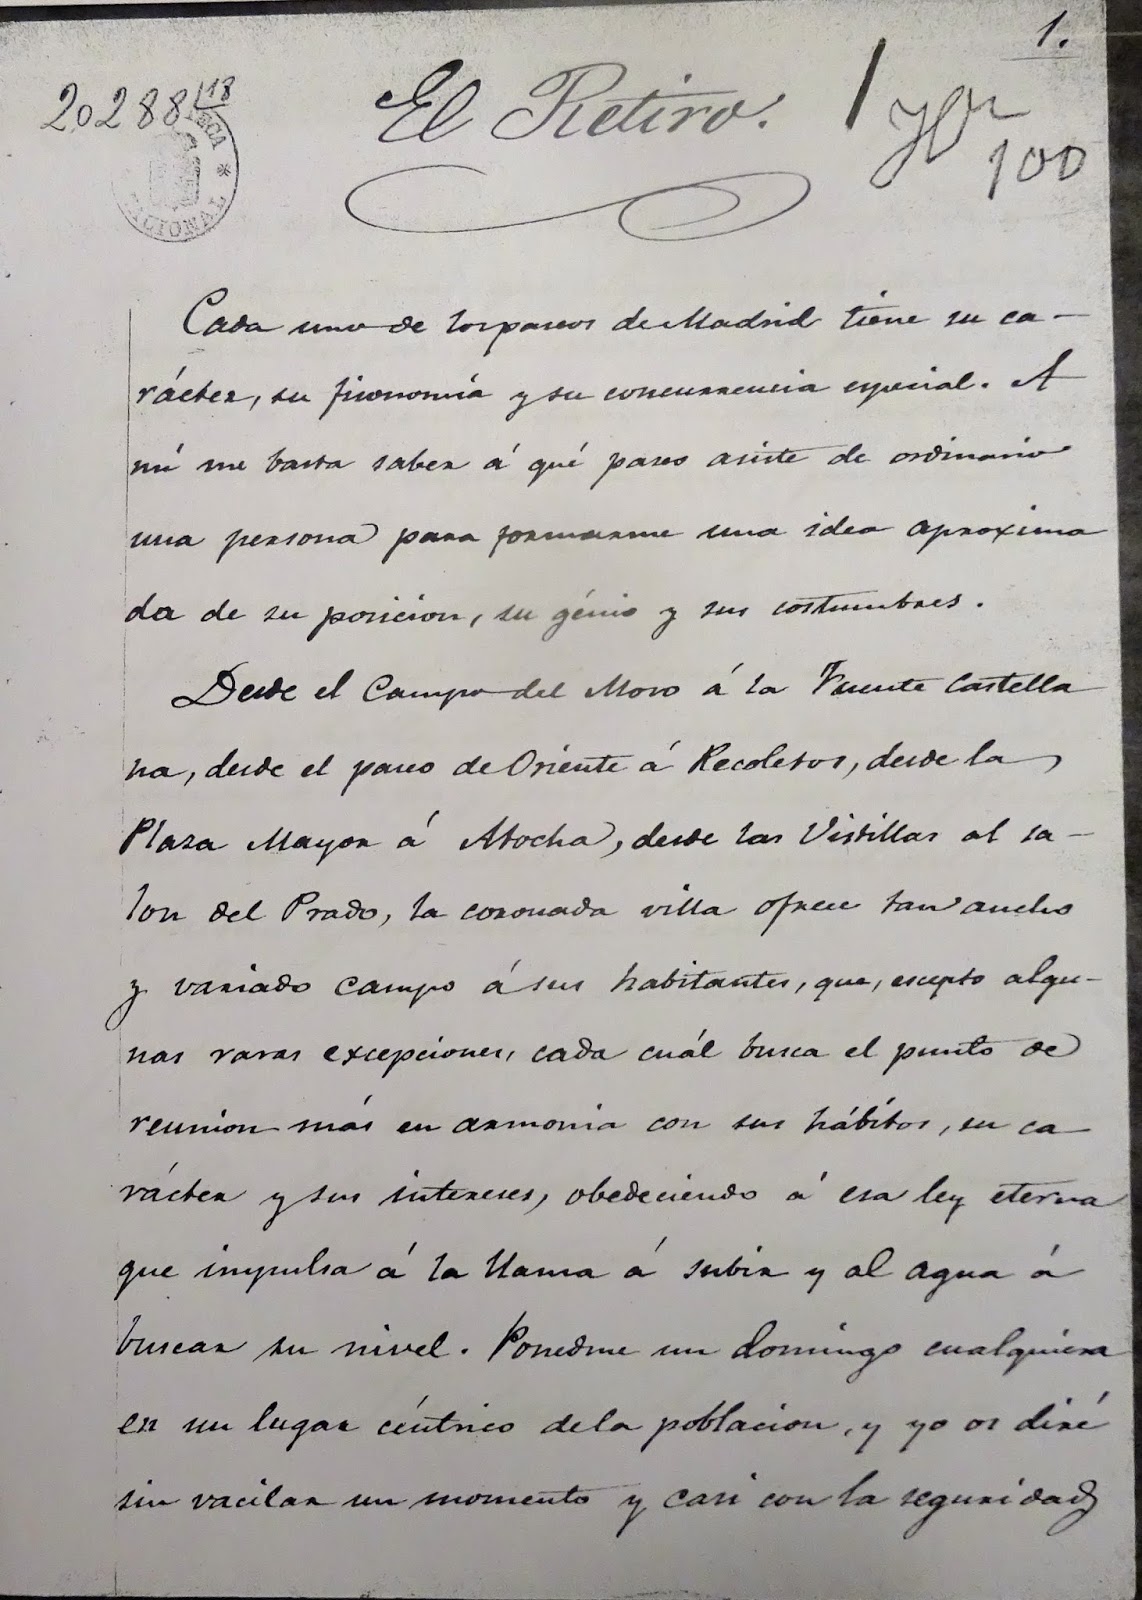 1.
20288 118
El Retiro.
100
NACIONAL
Cada uno de los paseos de Madrid tiene su ca-
rácter, su fisonomía y su concurrencia especial. A
mí me basta saber á qué paseo asiste de ordinario
una persona para formarme una idea aproxima
da de su posicion, su génio y sus costumbres.
Desde el Campo del Moro á la Fuente Castella
na, desde el paseo de Oriente á Recoletos, desde la
Plaza Mayor á Atocha, desde las Vistillas al sa-
lon del Prado, la coronada villa ofrece tan ancho
y variado campo á sus habitantes, que, escepto algu-
nas raras excepciones, cada cuál busca el punto de
reunion más en armonia con sus hábitos, su ca
rácter y sus intereses, obedeciendo á esa ley eterna
que impulsa á la llama á subir y al agua á
buscar su nivel. Ponedme un domingo cualquiera
en un lugar céntrico de la poblacion, y yo os diré
sin vacilar un momento y casi con la seguridad